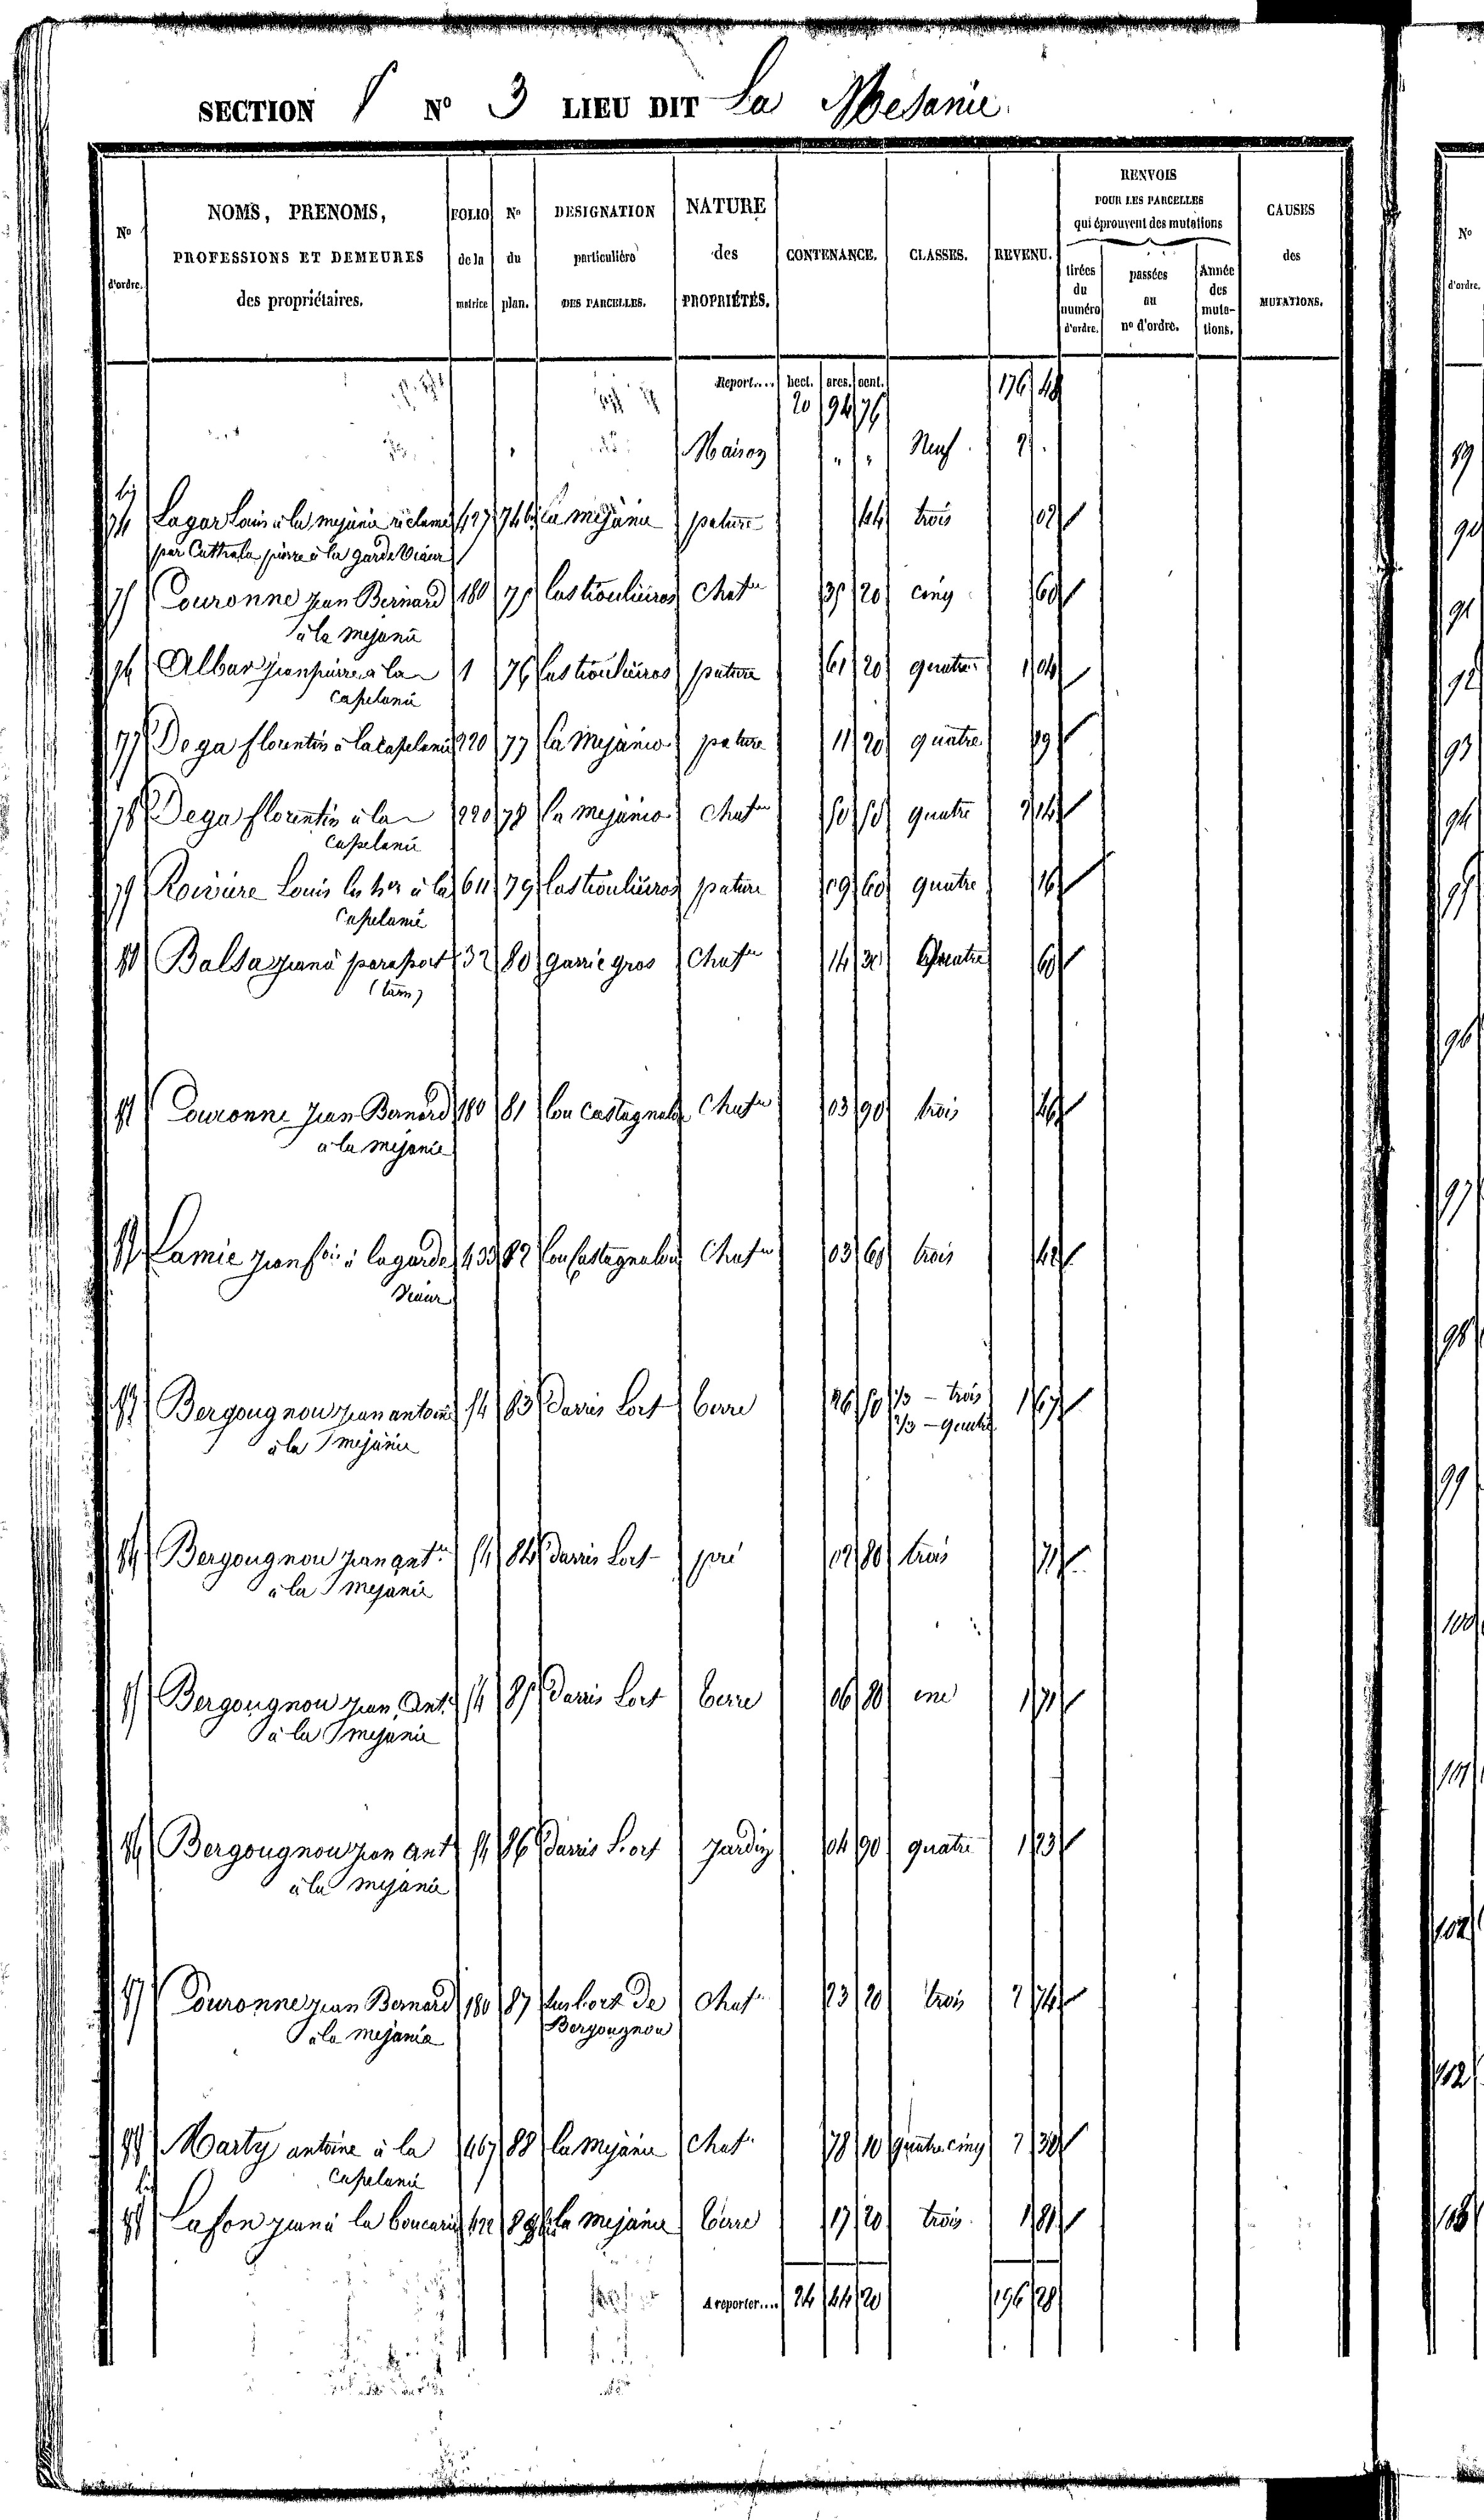 SECTION N° 3 LIEU DIT La Mejanie
N° d'ordre.
NOMS, PRENOMS, PROFESSIONS ET DEMEURES des propriétaires.
FOLIO de la matrice
N° du plan.
DESIGNATION particulière DES PARCELLES.
NATURE des PROPRIÉTÉS.
CONTENANCE.
CLASSES.
REVENU.
RENVOIS POUR LES PARCELLES qui éprouvent des mutations
tirées du numéro d'ordre.
passées au n° d'ordre.
Année des mutations.
CAUSES des MUTATIONS.
Report.... hect. ares. cent. 20 94 76 176 48
Maison " " Neuf 9
bis
74 Lagar Louis à la mejanie réclamé 427 74 bis la mejanie pature 44 trois 02
par Cuttrala pierre à la garde Viaur
75 Couronne jean Bernard 180 75 Las trouliéiros Chat 35 20 cinq 60
à la mejanie
76 Albar jean pierre à la 1 76 Las trouliéiros pature 61 20 quatre 1 04
Capelanie
77 Dega florentin à la Capelanie 220 77 la Mejanie pature 11 20 quatre 19
78 Dega florentin à la 220 78 la mejanie Chat quatre 2 14
Capelanie
79 Louis à la 611 79 Las trouliéiros pature 09 60 quatre 16
Capelanie
80 Balsa jean à parasport 32 80 garrie gros Chat 14 quatre 60
(tarn)
81 Couronne jean Bernard 180 81 Lou Castagnalou Chat 03 90 trois 46
à la mejanie
82 Lamic jean à lagarde 433 82 Lou Castagnalou Chat 03 60 trois 42
Viaur
83 Bergougnou jean antoine 54 83 Darris Lort terre 26 1/3 - trois 1 67
à la mejanie 2/3 - quatre
84 Bergougnou jean ant 54 84 Darris Lort pré 80 trois 71
à la mejanie
85 Bergougnou jean Ant 54 85 Darris Lort terre 06 80 une 1 71
à la mejanie
86 Bergougnou jean ant 54 86 Darris Lort jardin 04 90 quatre 1 23
à la mejanie
87 Couronne jean Bernard 180 87 Lus hort de Chat 23 20 trois 2 74
à la mejanie Bergougnou
88 Marty antoine à la 467 88 la mejanie Chat 78 10 quatre cinq 2 30
Capelanie
bis
88 Lafon jean à la boucarie 422 88 bis la mejanie terre 17 20 trois 1 81
A reporter.... 24 44 20 196 28
N° d'ordre.
89
90
91
92
93
94
95
96
97
98
99
100
101
102
103